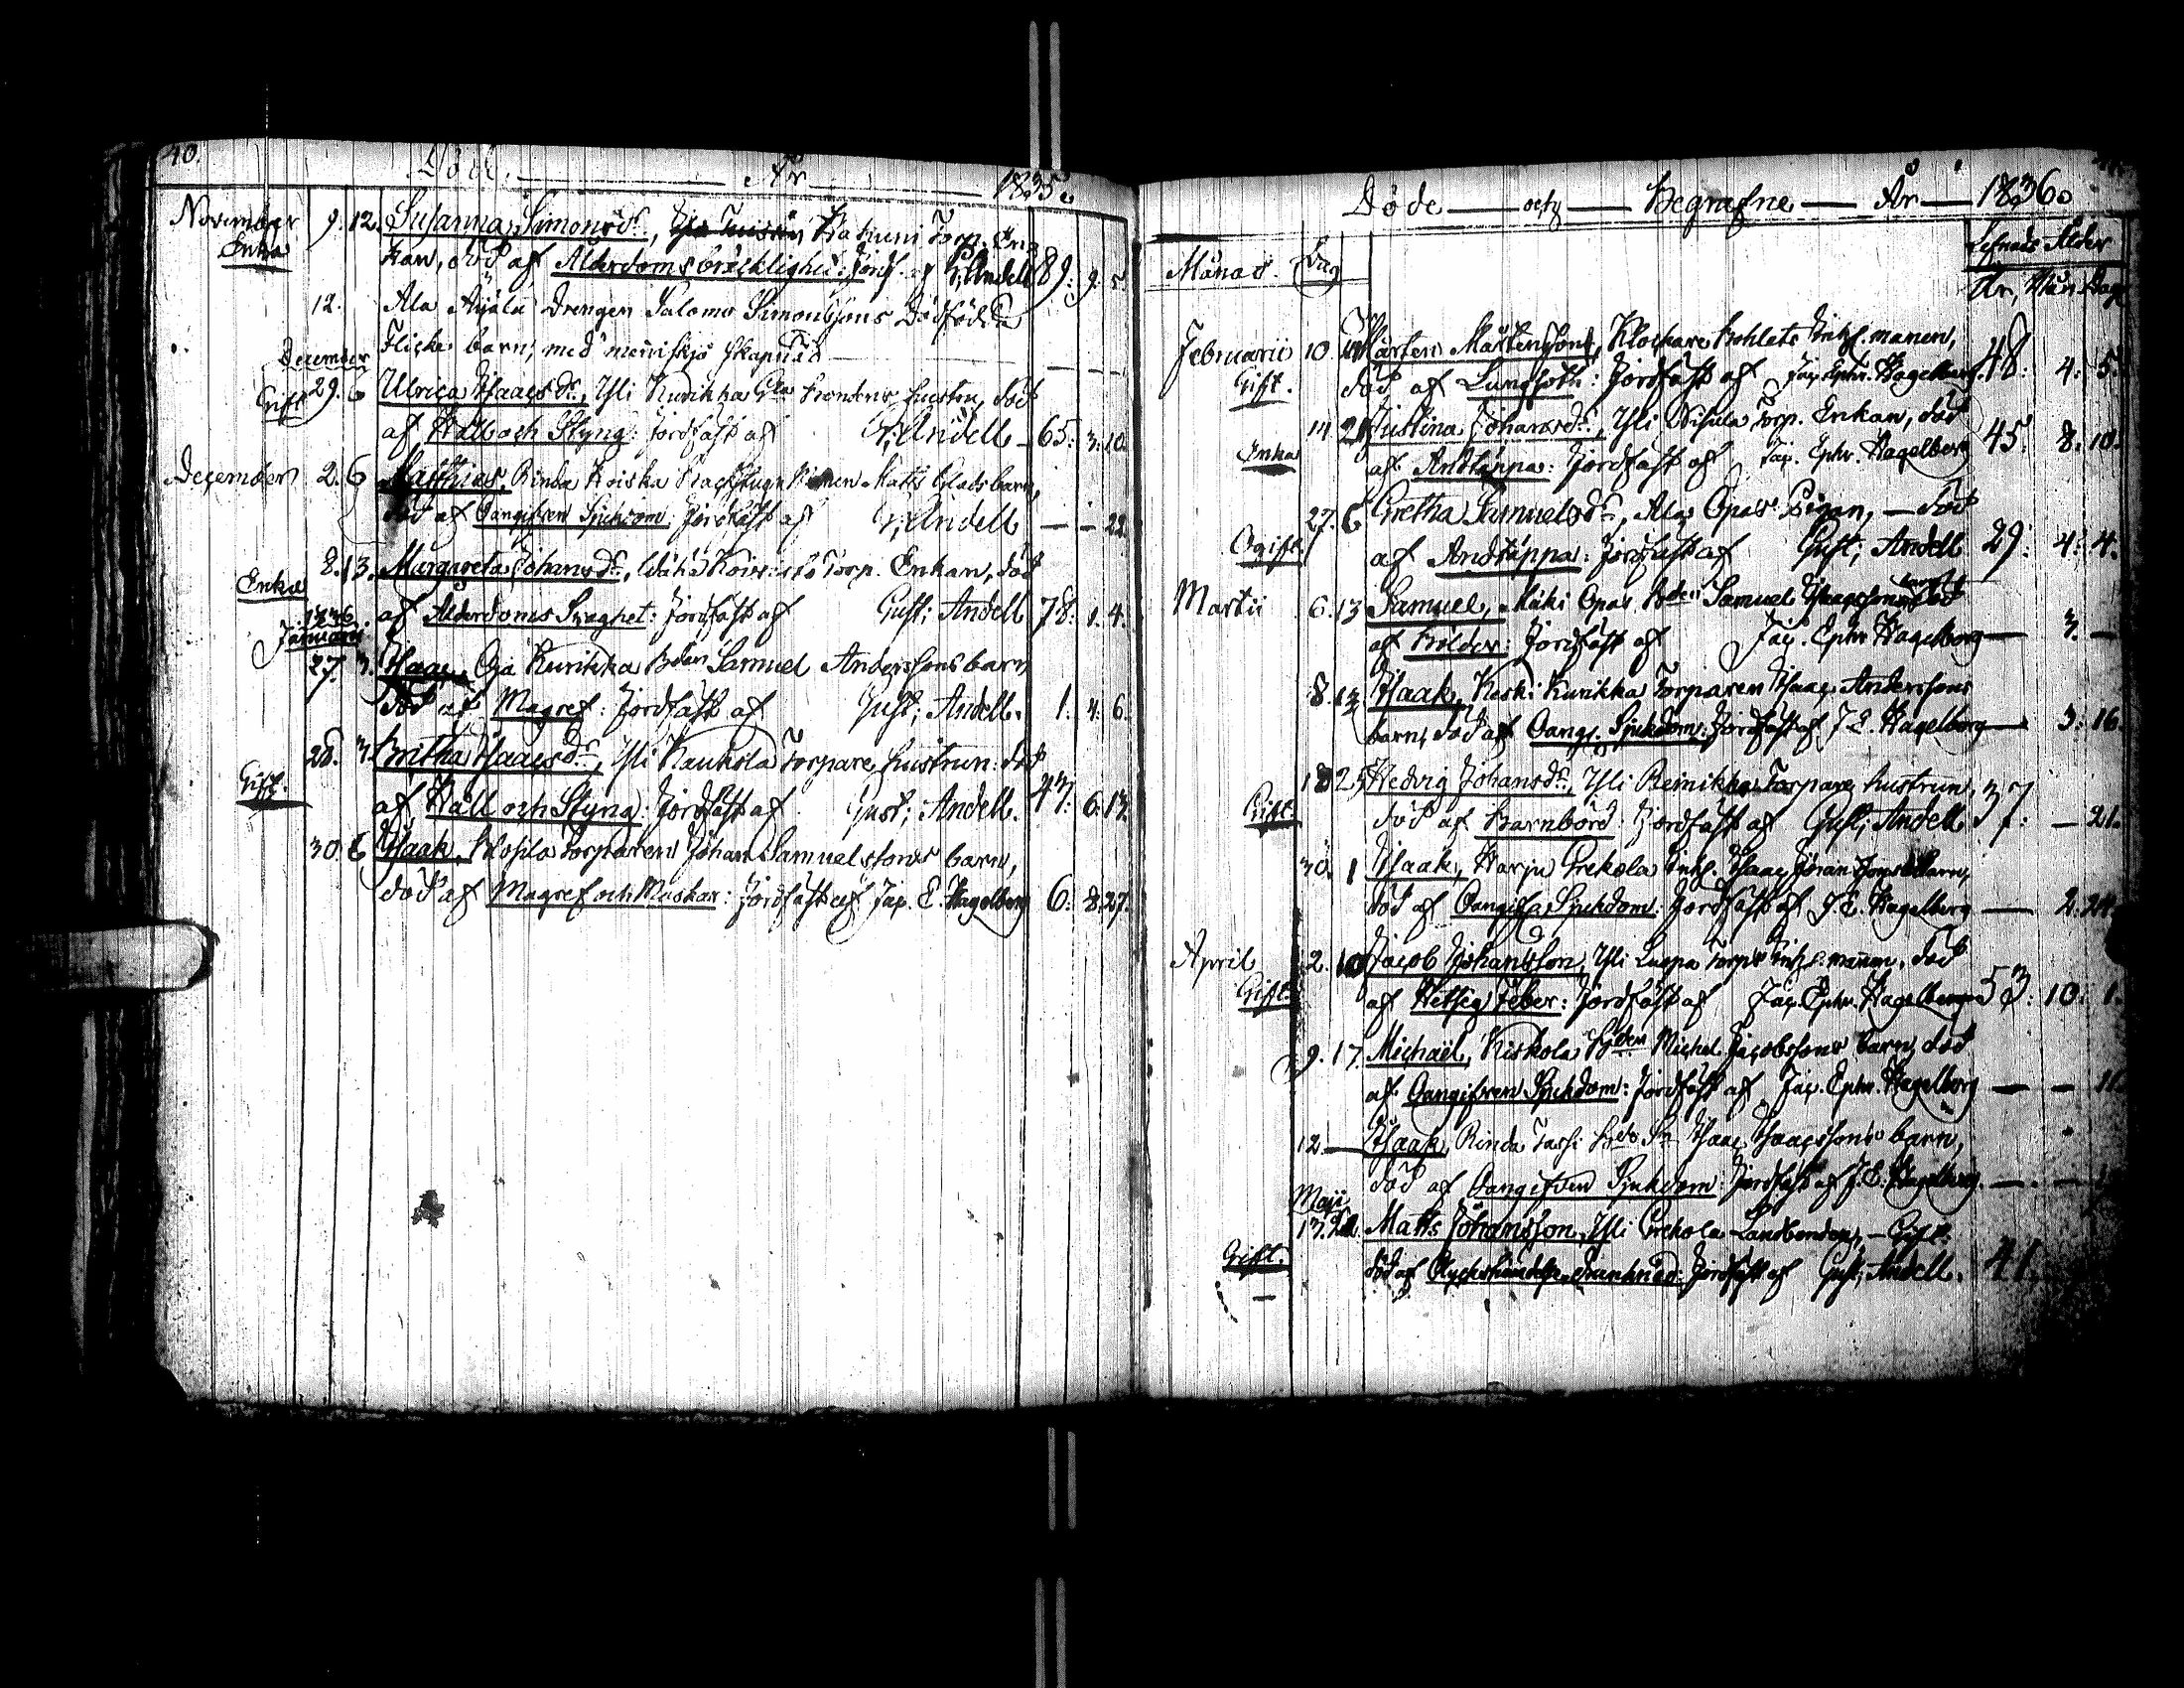 40. Död. År 1835.
November 9. 12. Susanna Simonsdr, Torp. En-
Enka kan, död af Ålderdomsbräcklighet: Jordf. af G. Andell 89: 9. 5
12. Ala Äijälä Drengen Salomo Simonssons Dödfödda
Flicke barn, med menniskjo skapnad
December
Gift 29. 6 Ulrica Isaacsdr, Yli Kurikka hustru, död
af Håll och Styng: Jordfäst af G; Andell 65: 3: 10.
December 2. 6 Matthias, Rinda Koiska Matts barn,
död af Oangifven Sjukdom: Jordfäst af G; Andell — — 22.
8. 13. Margareta Johansdr, Torp. Enkan, död
Enka af Ålderdoms Svaghet: Jordfäst af Gust; Andell 78: 1. 4.
1836
Januarii
27. 3. Isaac, Oja Kurikka Bden Samuel Anderssons barn
död af Magref: Jordfäst af Gust; Andell. 1: 4: 6.
28. 3. Britha Isaacsdr, Yli Kauhola Torpare hustrun: död
Gift. af Håll och Styng: Jordfäst af Gust; Andell. 47: 6: 13.
30. 6 Isaak, Torparen Johan Samuelssons barn,
död af Magref och Maskar: Jordfäst af Jap. E. Hagelberg 6: 8: 27.
Döde och Begrafne År 1836.
Månad. Dag Lefnads Ålder
År, Mån Dag
Februarii 10. Mårten Mårtensson, Klockare Inhs. manen,
Gift. död af Lungsoth: Jordfäst af Jap. Ephr. Hagelberg. 48: 4: 5.
14 21 Justina Johansdr, Yli Torp. Enkan, död
Enka af Andtäppa: Jordfäst af Jap. Ephr. Hagelberg 45: 8: 10.
27. 6 Gretha Samuelsdr, Ala Opas Pigan, — död
Ogift af Andtäppa: Jordfäst af Gust; Andell 29: 4: 4.
Martii 6. 13 Samuel, Mäki Opas Bden Samuel Isaacssons barn död
af Jordfäst af Jap. Ephr Hagelberg — 3. —
8. 13 Isaak, Keski Kurikka Torparen Isaac Anderssons
barn, död af Oangf. Sjukdom: Jordfäst af J. E. Hagelberg — 3: 16.
18 25 Hedvig Johansdr, Yli Reinikka Torpare hustrun,
Gift. död af Barnbörd: Jordfäst af Gust; Andell 37: — 21.
30. 1 Isaak, Harju Prekola Inhs. Isaac barn,
död af Oangifn Sjukdom: Jordfäst af J. E. Hagelberg — 2: 24.
April 2. 10 Jacob Johansson, Yli Luopa Torps Inhs. manen, död
Gift. af Hetsig Feber: Jordfäst af Jap. Ephr. Hagelberg 53: 10: 1.
9. 17. Michaël, Kiskola Bden Michel Jacobssons barn, död
af Oangifven Sjukdom: Jordfäst af Jap. Ephr. Hagelberg — —
12. — Isaak, Rinda Jassi Isaac Isaacssons barn,
död af Oangifven Sjukdom: Jordfäst af J. E. Hagelberg. — —
Maji
13. Matts Johansson, Yli Prekola Landbonden, — Gift.
Gift. död af Olyckshändelse Drunknad: Jordfäst af Gust; Andell. 41.